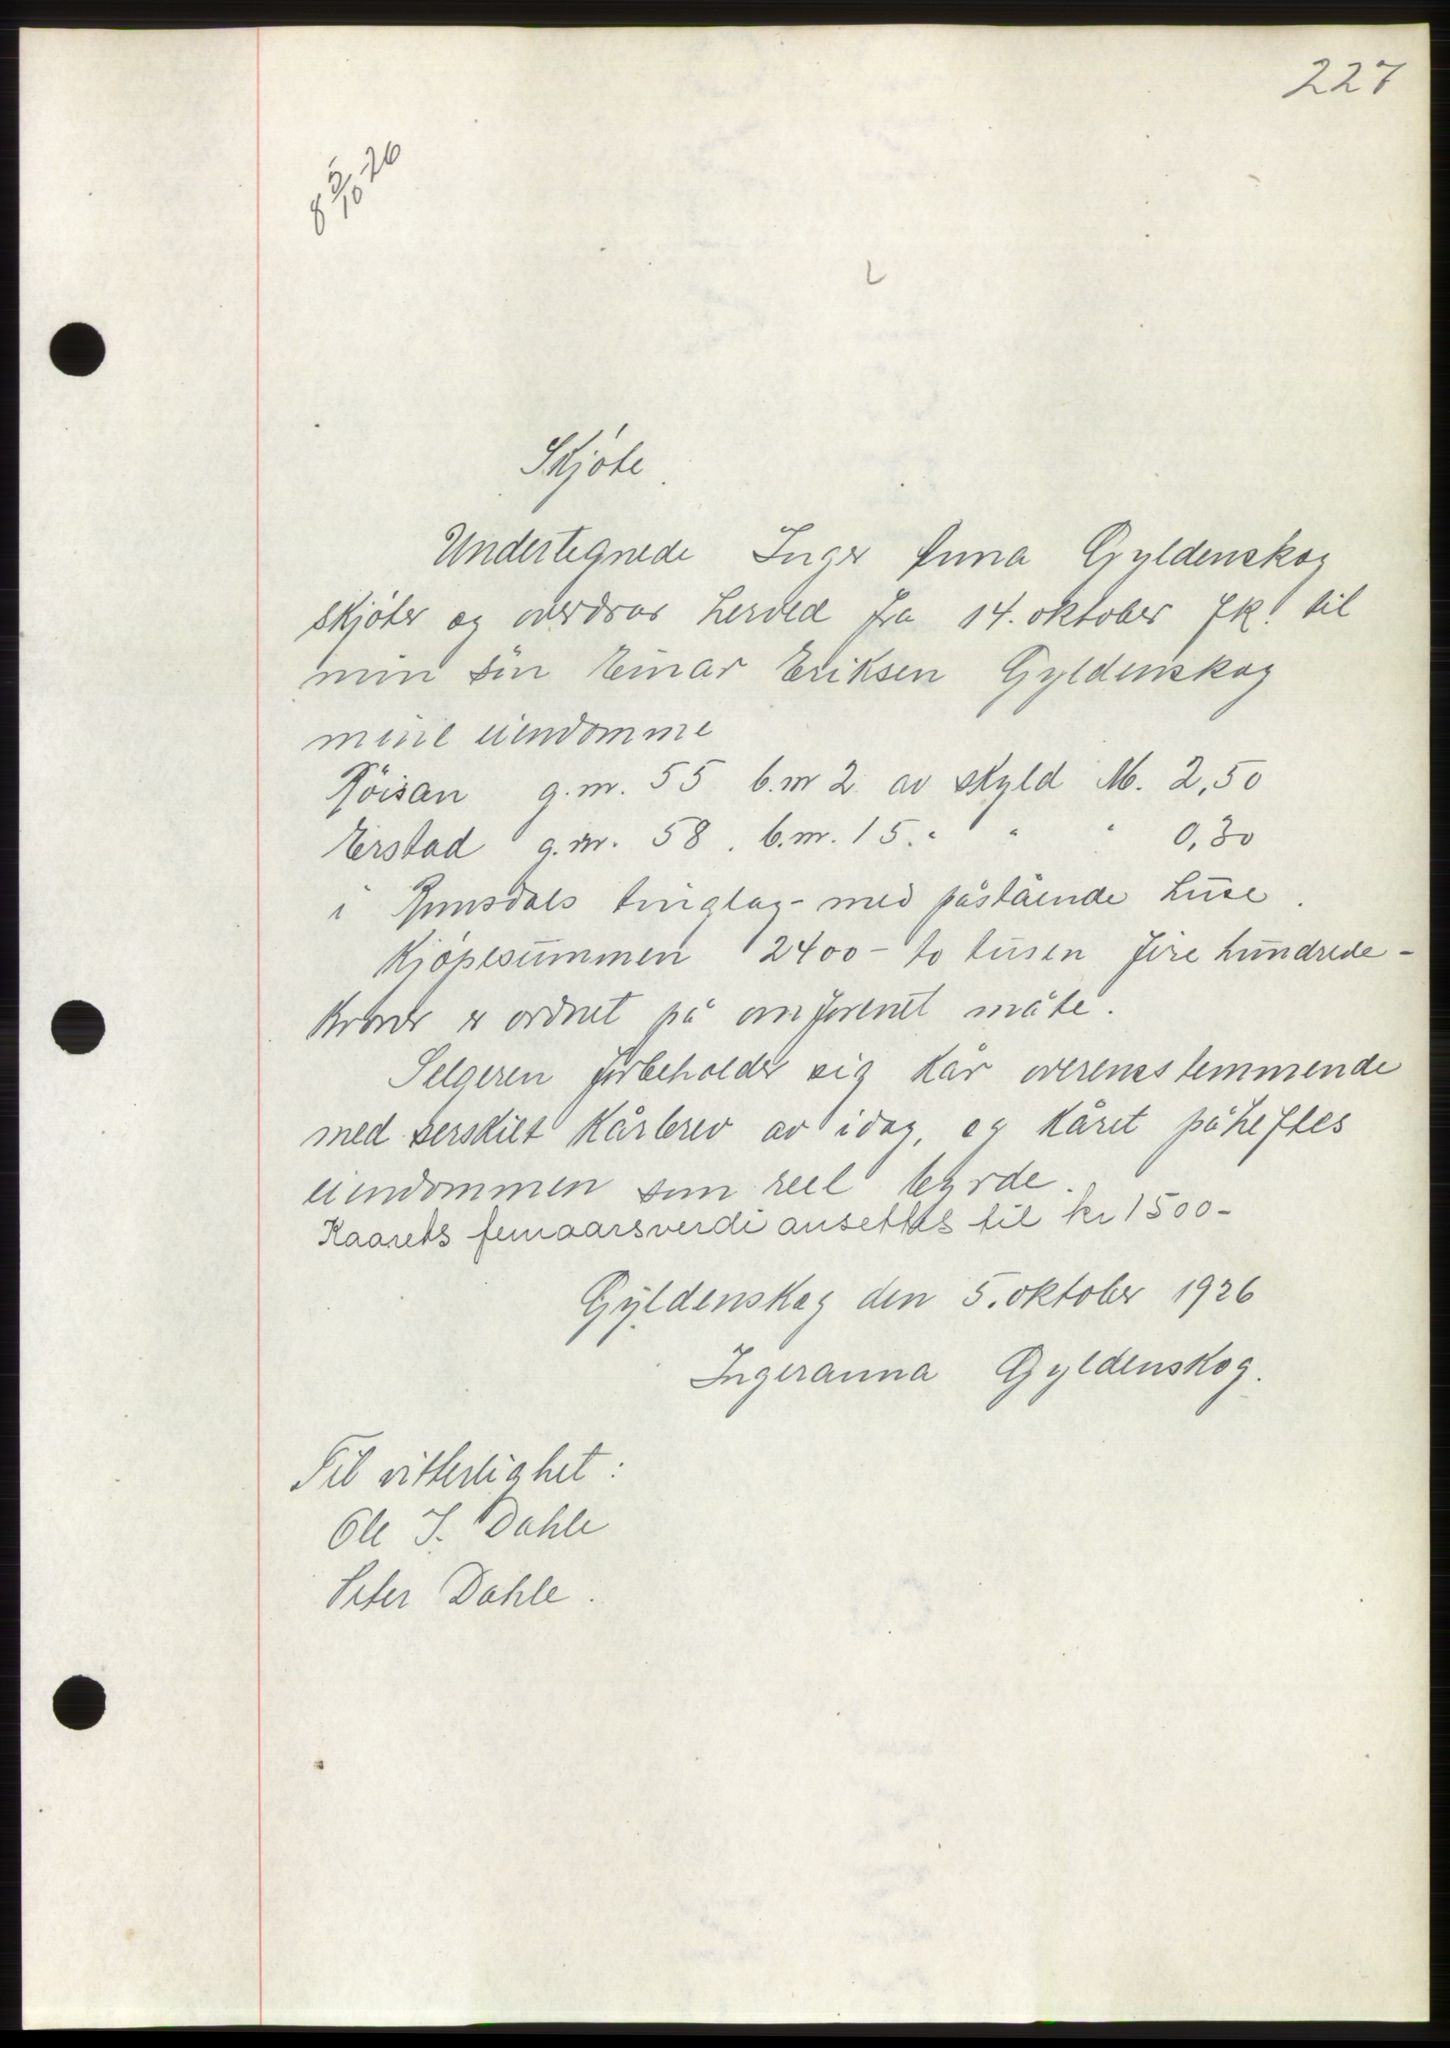 227
8 5/10 26
Skjøte.
Undertegnede Inger Anna Gyldenskog
skjøter og overdrar herved fra 14. oktober fk. til
min søn Einar Eriksen Gyldenskog
mine eiendomme
Røisan g.nr. 55 b.nr 2 av skyld M. 2,50
Eirstad g.nr. 58. b.nr. 15. " " " 0,30
i tinglag - med påstående huse.
Kjøpesummen 2400 - to tusen fire hundrede -
kroner er ordnet på omforenet måte.
Selgeren forbeholder sig kår overensstemmende
med serskilt kårbrev av idag, og kåret påheftes
eiendommen som reel byrde.
Kaarets femaarsverdi ansettes til kr 1500-
Gyldenskog den 5. oktober 1926
Ingeranna Gyldenskog.
Til vitterlighet:
Ole I. Dahle
Peter Dahle.